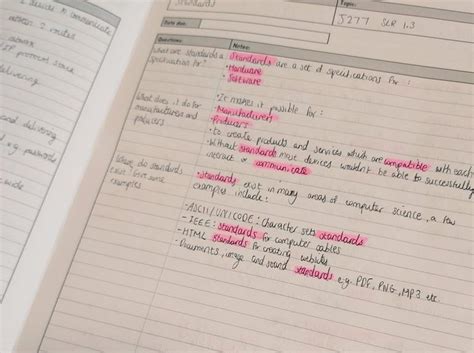 Standards
Topic:
J277 SLR 1.3
Date due:
Questions:
Notes:
What are standards a
specification for?
Standards are a set of specifications for:
· Hardware
· Software
What does it do for
manufacturers and
producers
· It makes it possible for:
· Manufacturers
· Producers
- to create products and services which are compatible with each
· Without standards most devices wouldn't be able to successfully
interact or communicate
Where do standards
exist? Give some
examples
· Standards exist in many areas of computer science, a few
examples include:
- ASCII/UNICODE: character sets standards
- IEEE: standards for computer cables
- HTML standards for creating websites
- Documents, image and sound standards e.g. PDF, PNG, MP3 etc
to communicate
2 routes
protocol stack
delivering
and delivering
e.g. password